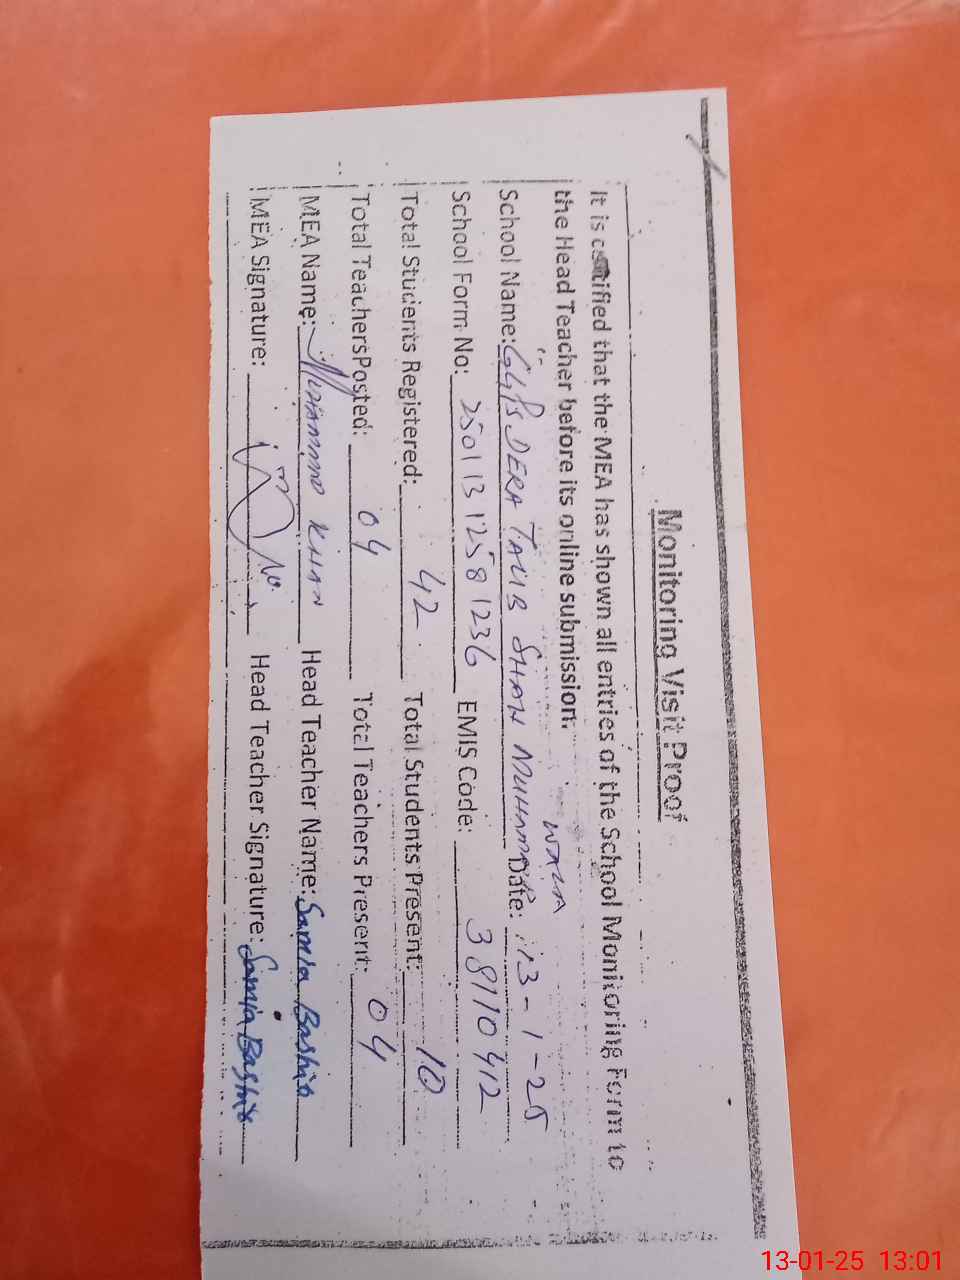 Monitoring Visit Proof
It is certified that the MEA has shown all entries of the School Monitoring Form to
the Head Teacher before its online submission.
School Name: GGPS DERA TALIB SHAH MUHAMMAD WALA Date: 13-1-25
School Form No: 25011312581236 EMIS Code: 38110412
Total Students Registered: 42 Total Students Present: 10
Total Teachers Posted: 04 Total Teachers Present: 04
MEA Name: MUHAMMD KHAN Head Teacher Name: Samia Bashir
MEA Signature: Head Teacher Signature: Samia Bashir
13-01-25 13:01